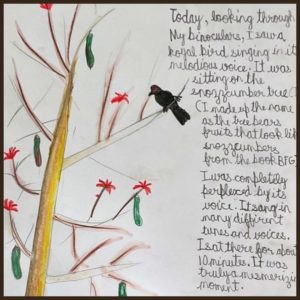 Today, looking through
My binoculars, I saw a
royal bird singing in it
melodious voice. It was
sitting on the
snozzcumber tree.
(I made up the name
as the tree bears
fruits that look like
snozzcumbers
from the book BFG)
I was completly
perplexed by its
voice. It sang in
many diffirent
tunes and voices.
I sat there for about
10 minutes. It was
truly a mesmerizing
moment.